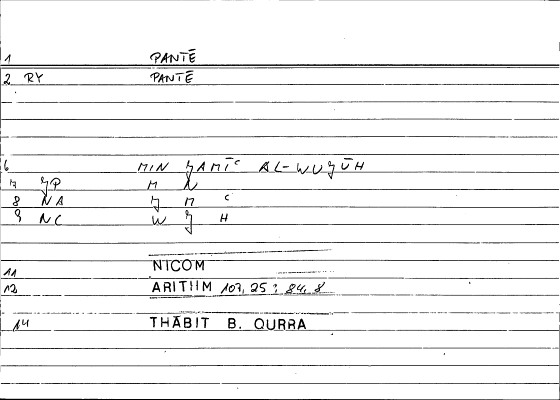 1 PANTĒ
2 RY PANTĒ
6 MIN ǦAMĪʿ AL-WUǦŪH
7 ǦP M N
8 NA Ǧ M ʿ
9 NC W Ǧ H
11 NICOM
12 ARITHM 107, 25 ; 84, 8
14 THĀBIT B. QURRA